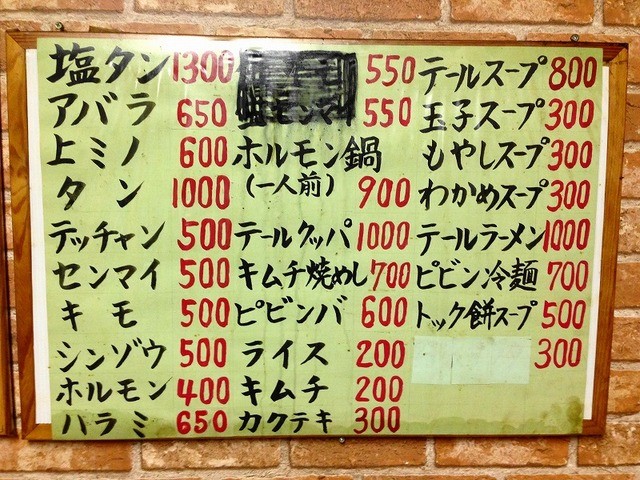 塩タン 1300
アバラ 650
上ミノ 600
タン 1000
テッチャン 500
センマイ 500
キモ 500
シンゾウ 500
ホルモン 400
ハラミ 650
550
550
ホルモン鍋
(一人前) 900
テールクッパ 1000
キムチ焼めし 700
ピビンバ 600
ライス 200
キムチ 200
カクテキ 300
テールスープ 800
玉子スープ 300
もやしスープ 300
わかめスープ 300
テールラーメン 1000
ピビン冷麺 700
トック餅スープ 500
300